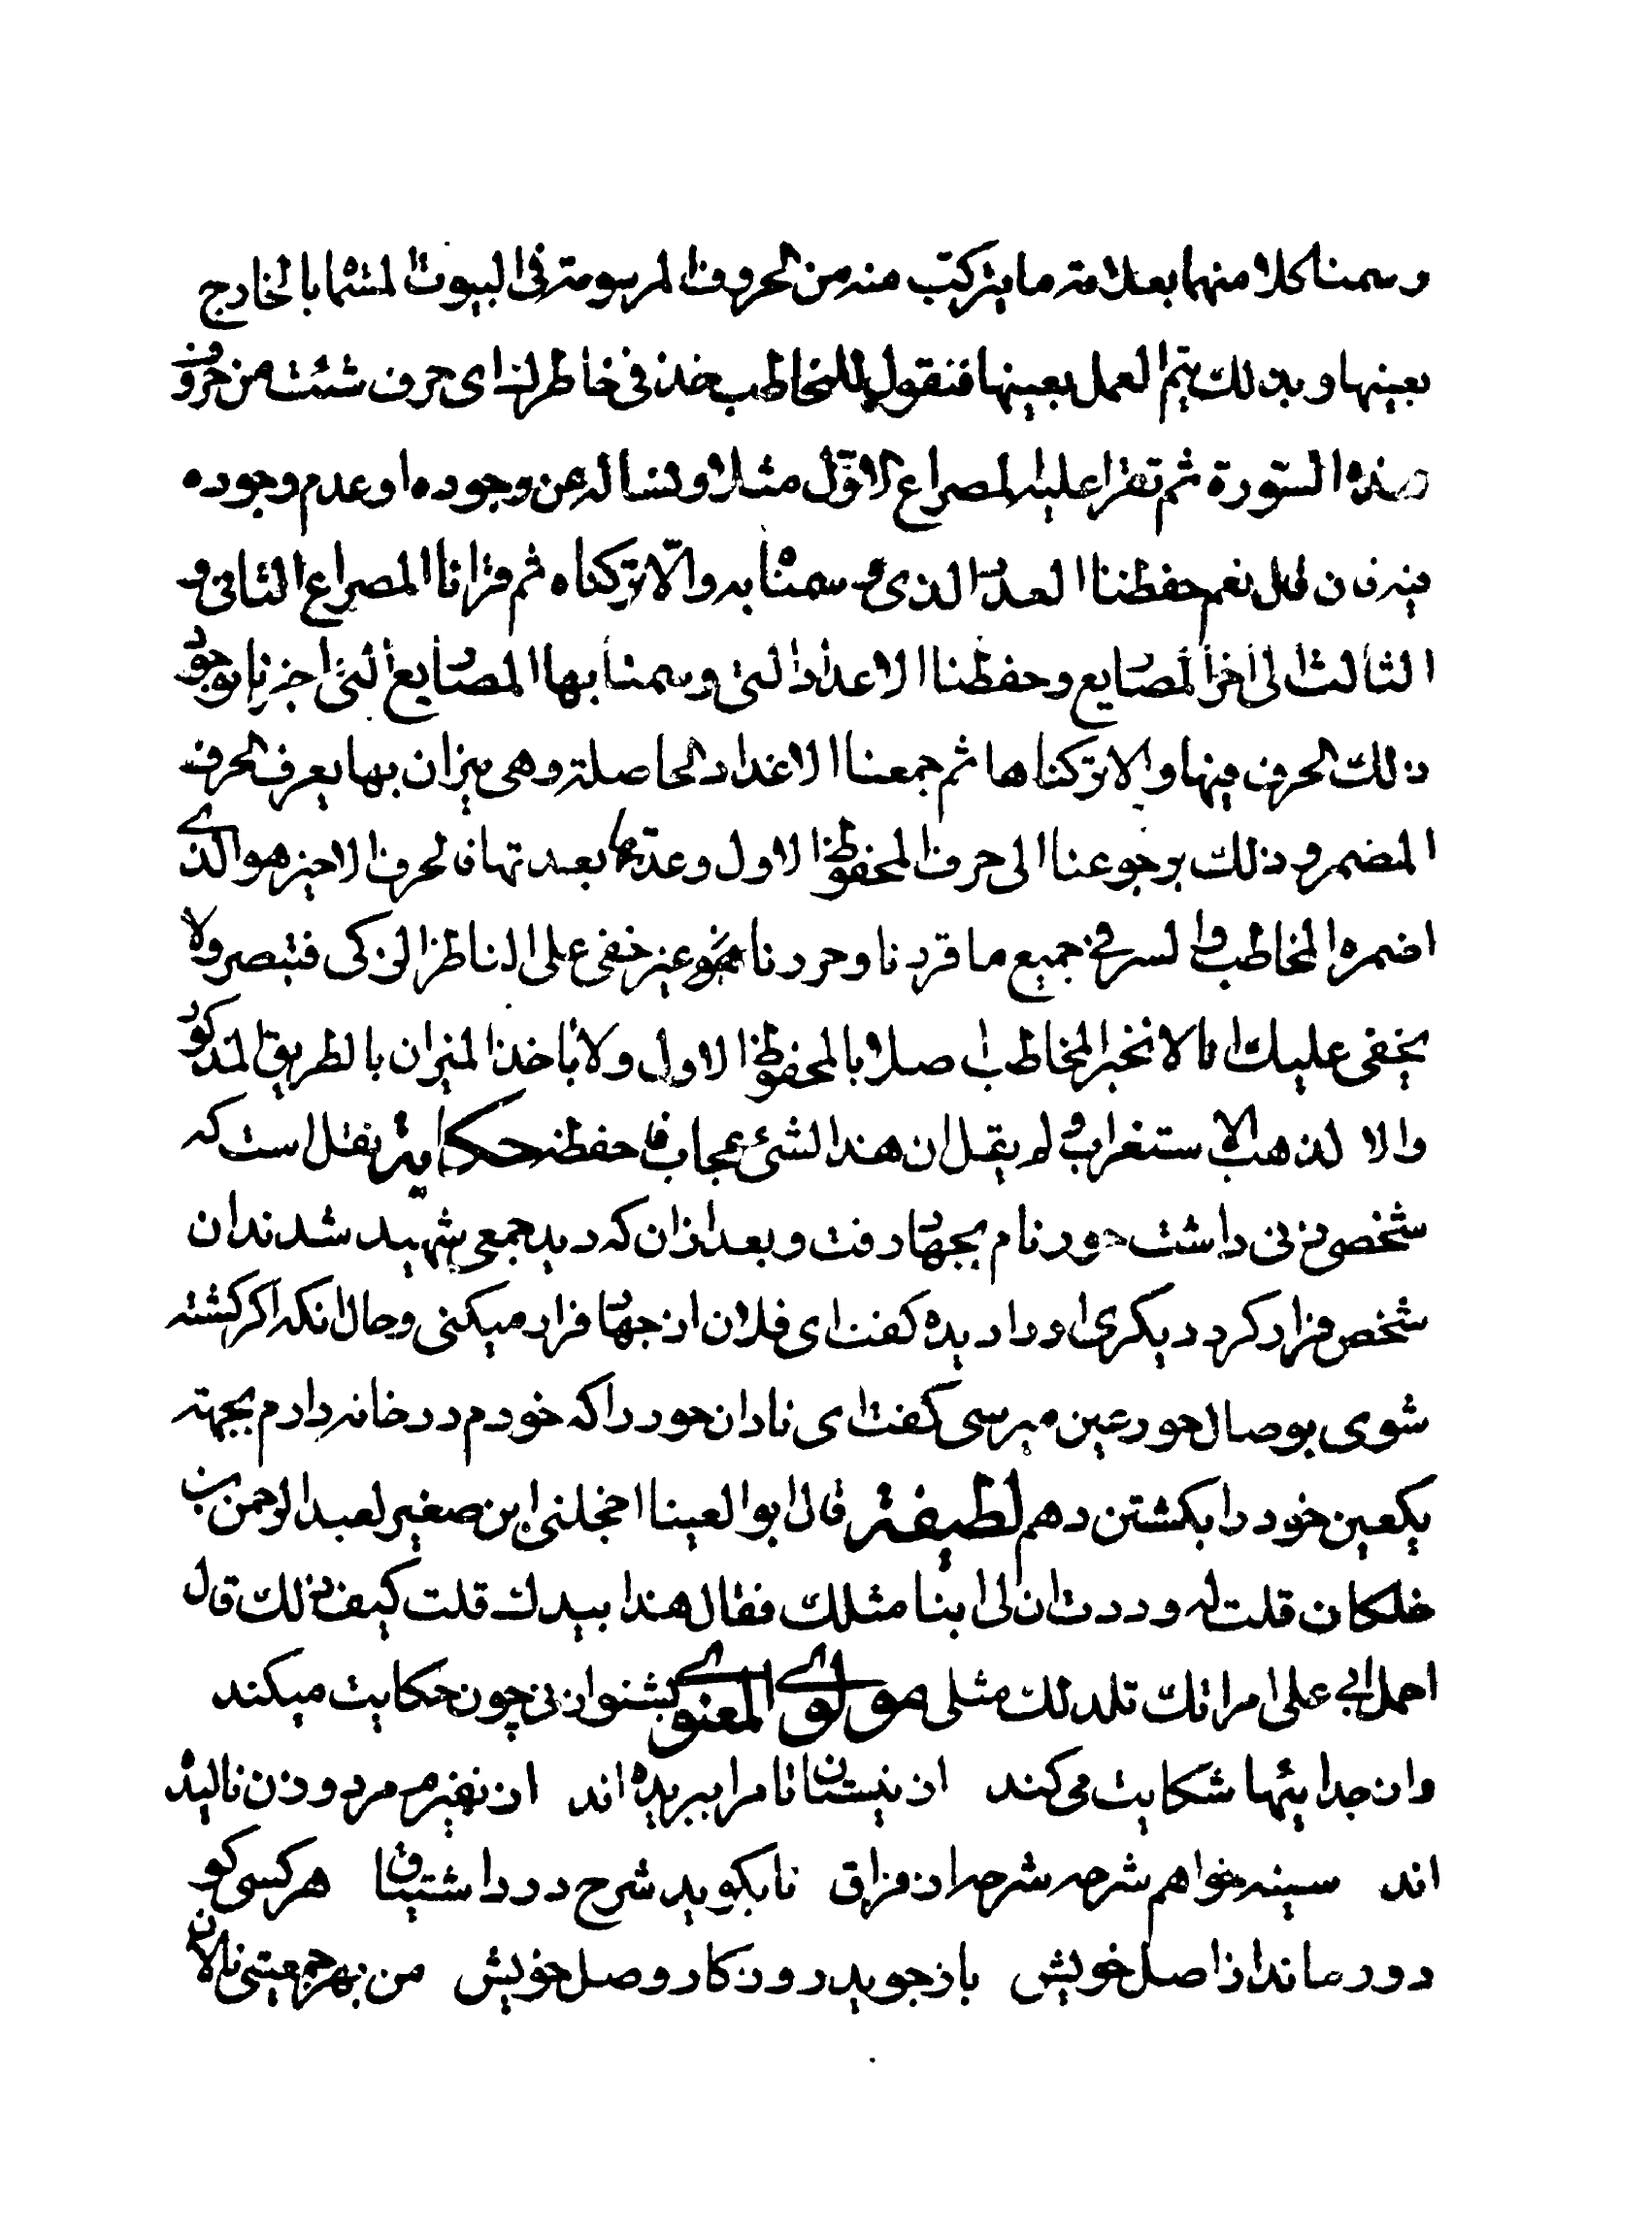 وسمنا كلا منهما بعلامته ما يتركب منه من الحروف المرسومة في البيوت المسماة بالخارج
بعينها وبذلك يتم العمل بعينها فنقول للمخاطب خذ في خاطرك اي حرف شئت من حروف
هذه الستورة ثم تقرا عليه المصراع الاول مثلا ونساله عن وجوده او عدم وجوده
فيه فان قال نعم حفظنا العدد الذي وسمناه به والا تركناه ثم قرانا المصراع الثاني و
الثالث الى اخر المصاريع وحفظنا الاعداد التي وسمنا بها المصاريع التي اخبرنا بوجود
ذلك الحرف فيها والا تركناها ثم جمعنا الاعداد الحاصلة وهي ميزان بها يعرف الحرف
المضمر وذلك برجوعنا الى حرف المحفوظ الاول وعدها بعدتها فالحرف الاخير هو الذي
اضمره المخاطب والسر في جميع ما قررنا وحررنا نحو غير خفي على الناظر الذكي فتبصر ولا
يخفى عليك انا لا نخبر المخاطب اصلا بالمحفوظ الاول ولا باخذ الميزان بالطريق المذكور
والا لذهب الاستغراب ولم يقل ان هذا لشئ عجاب فاحفظه حكاية نقل است كه
شخصى زنى داشت حور نام بجهاد رفت وبعد از ان كه ديد جمعى شهيد شدند ان
شخص فرار كرد ديكرى او را ديده كفت اى فلان از جهاد فرار ميكنى وحال انكه اكر كشته
شوى بوصال حور عين ميرسى كفت اى نادان حور را كه خودم در خانه دارم بجهة
يكعين خود را بكشتن دهم لطيفة قال ابو العينا اخجلنى ابن صغير لعبد الرحمن بن
خلكان قلت له وددت ان لى ابنا مثلك فقال هذا بيدك قلت كيف ذلك قال
احمل ابي على امراتك تلد لك مثلى مولوي المعنوي بشنو از نى چون حكايت ميكند
وان جدايئها شكايت مى كند از نيستان تا مرا ببريده اند از نفيرم مرد و زن ناليده
اند سينه خواهم شرحه شرحه از فراق تا بكويد شرح درد اشتياق هر كسى كو
دور ماند از اصل خويش باز جويد روزكار وصل خويش من بهر جمعيتى نالان